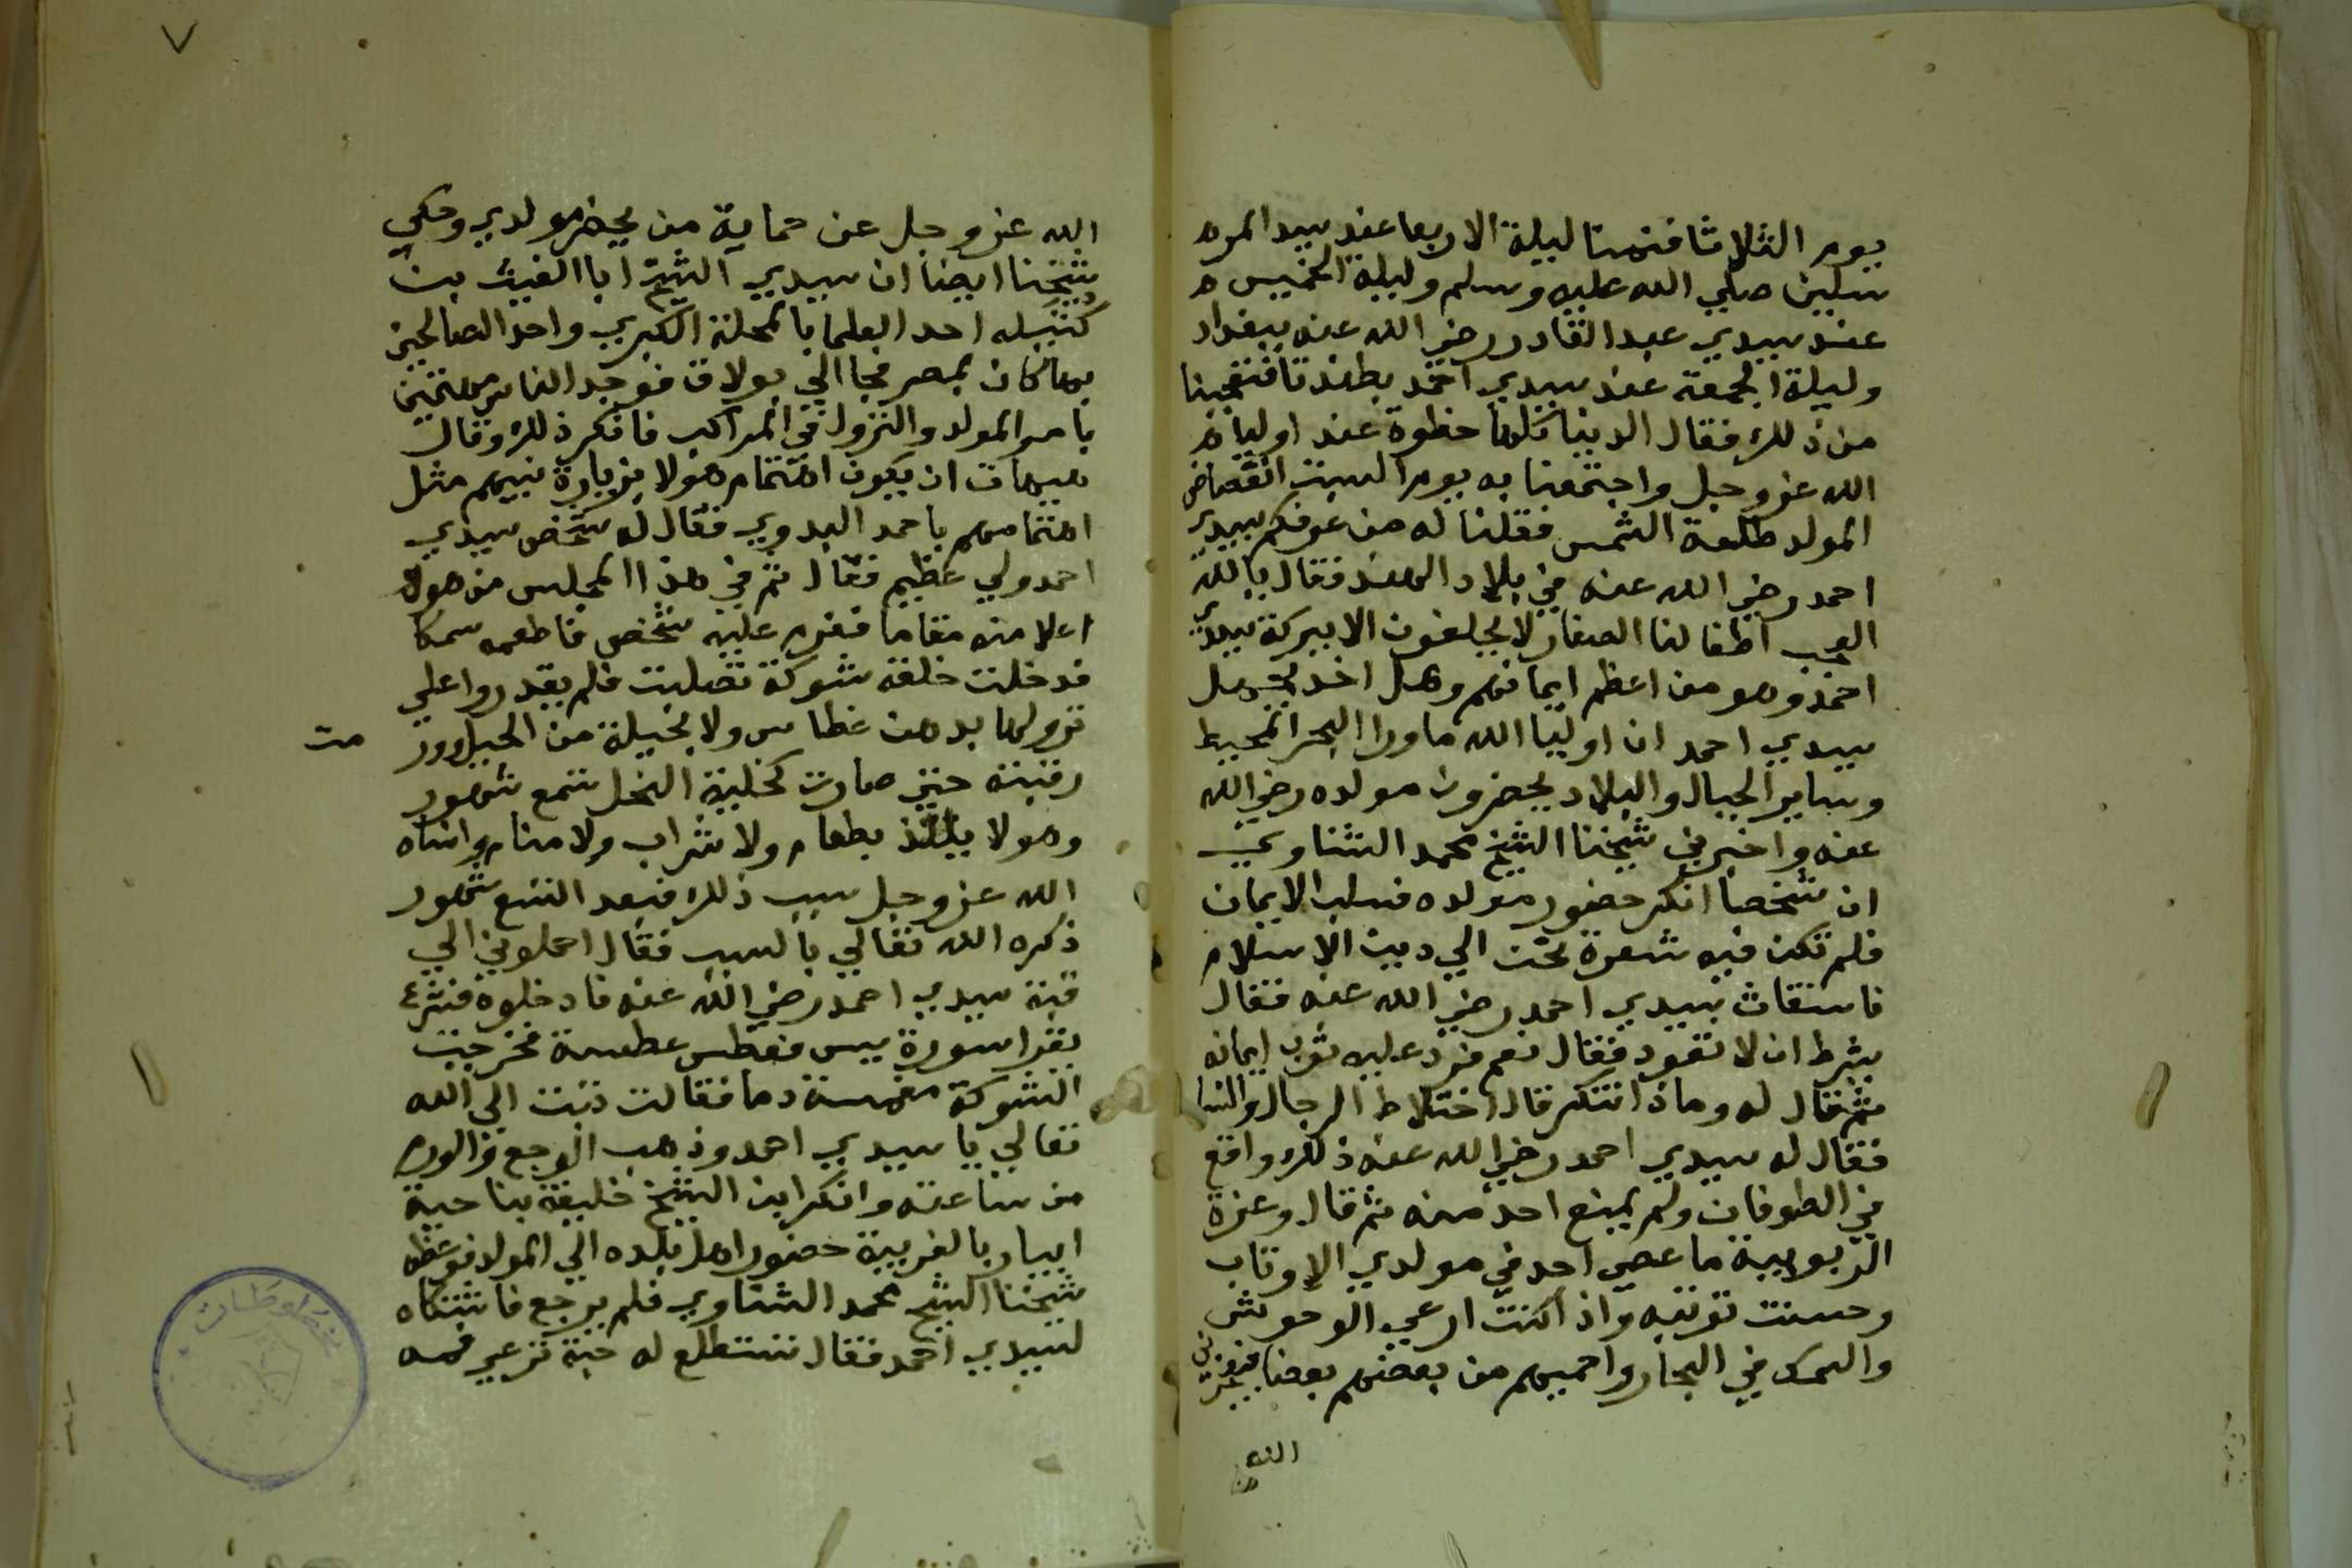 يوم الثلاثا فنمنا ليلة الاربعا عند سيد المر
سلين صلي الله عليه وسلم وليلة الخميس
عند سيدي عبد القادر رضي الله عنه ببغداد
وليلة الجمعة عند سيدي احمد بطندتا فتعجبنا
من ذلك فقال الدنيا كلها خطوة عند اوليا
الله عز وجل واجتمعنا به يوم السبت انفضاض
المولد طلعة الشمس فقلنا له من عرفكم بسيدي
احمد رضي الله عنه في بلاد الهند فقال يالله
العجب اطفالنا الصغار لا يحلفون الا ببركة سيدي
احمد وهو من اعظم ايمانهم وهل احد يجهل
سيدي احمد ان اوليا الله ما ورا البحر المحيط
وساير الجبال والبلاد يحضرون مولده رضي الله
عنه واخبرني شيخنا الشيخ محمد الشناوي
ان شخصا انكر حضور مولده فسلب الايمان
فلم تكن فيه شعرة تحن الي دين الاسلام
فاستغاث بسيدي احمد رضي الله عنه فقال
بشرط ان لا تعود فقال نعم فرد عليه ثوب ايمانه
ثم قال له وماذا تنكر قال اختلاط الرجال والنسا
فقال له سيدي احمد رضي الله عنه ذلك واقع
في الطوفان ولم يمنع احد منه ثم قال وعزة
الربوبية ما عصي احد في مولدي الا وتاب
وحسنت توبته واذا كنت ارعي الوحوش
والسمك في البحار واحميهم من بعضهم بعضا فيعجزني
الله
٧
الله عز وجل عن حماية من يحضر مولدي وحكي
شيخنا ايضا ان سيدي الشيخ ابا الغيث بن
كتيله احد العلما بالمحلة الكبري واحد الصالحين
بها كان بمصر فجا الي بولاق فوجد الناس مهتمين
بامر المولد والنزول في المراكب فانكر ذلك وقال
هيهات ان يكون اهتمام هولا بزيارة نبيهم مثل
اهتمامهم باحمد البدوي فقال له شخص سيدي
احمد ولي عظيم فقال ثم في هذا المجلس من هو
اعلا منه مقاما فعزم عليه شخص فاطعمه سمكا
فدخلت حلقه شوكة تصلبت فلم يقدروا علي
نزولها بدهن عطاس ولا بحيلة من الحيل وور
مت
رقبته حتي صارت كخلية النحل تسع شهور
وهو لا يلتذ بطعام ولا شراب ولا منام وانساه
الله عز وجل سبب ذلك فبعد التسع شهور
ذكره الله تعالي بالسبب فقال احملوني الي
قبة سيدي احمد رضي الله عنه فادخلوه فشرع
يقرا سورة يس فعطس عطسة فخرجت
الشوكة مغمسة دما فقال تبت الي الله
تعالي يا سيدي احمد وذهب الوجع والورم
من ساعته وانكر ابن الشيخ خليفة بناحية
ابيار بالغربية حضور اهل بلده الي المولد فوعظه
شيخنا الشيخ محمد الشناوي فلم يرجع فاشتكاه
لسيدي احمد فقال ستطلع له حبة ترعي فمه